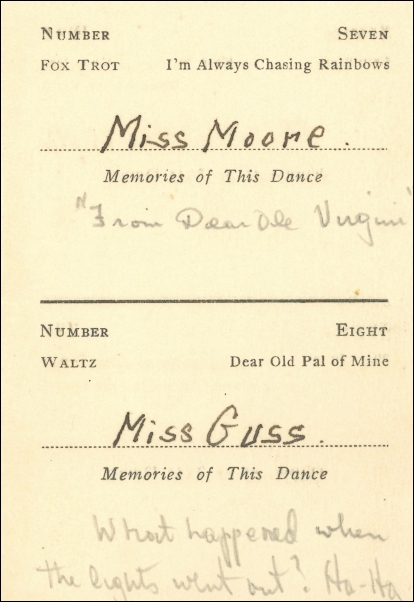 NUMBER SEVEN
FOX TROT I'm Always Chasing Rainbows
Miss Moore.
Memories of This Dance
"From Dear Ole Virgini"
NUMBER EIGHT
WALTZ Dear Old Pal of Mine
Miss Guss.
Memories of This Dance
What happened when
the lights went out? Ha-Ha